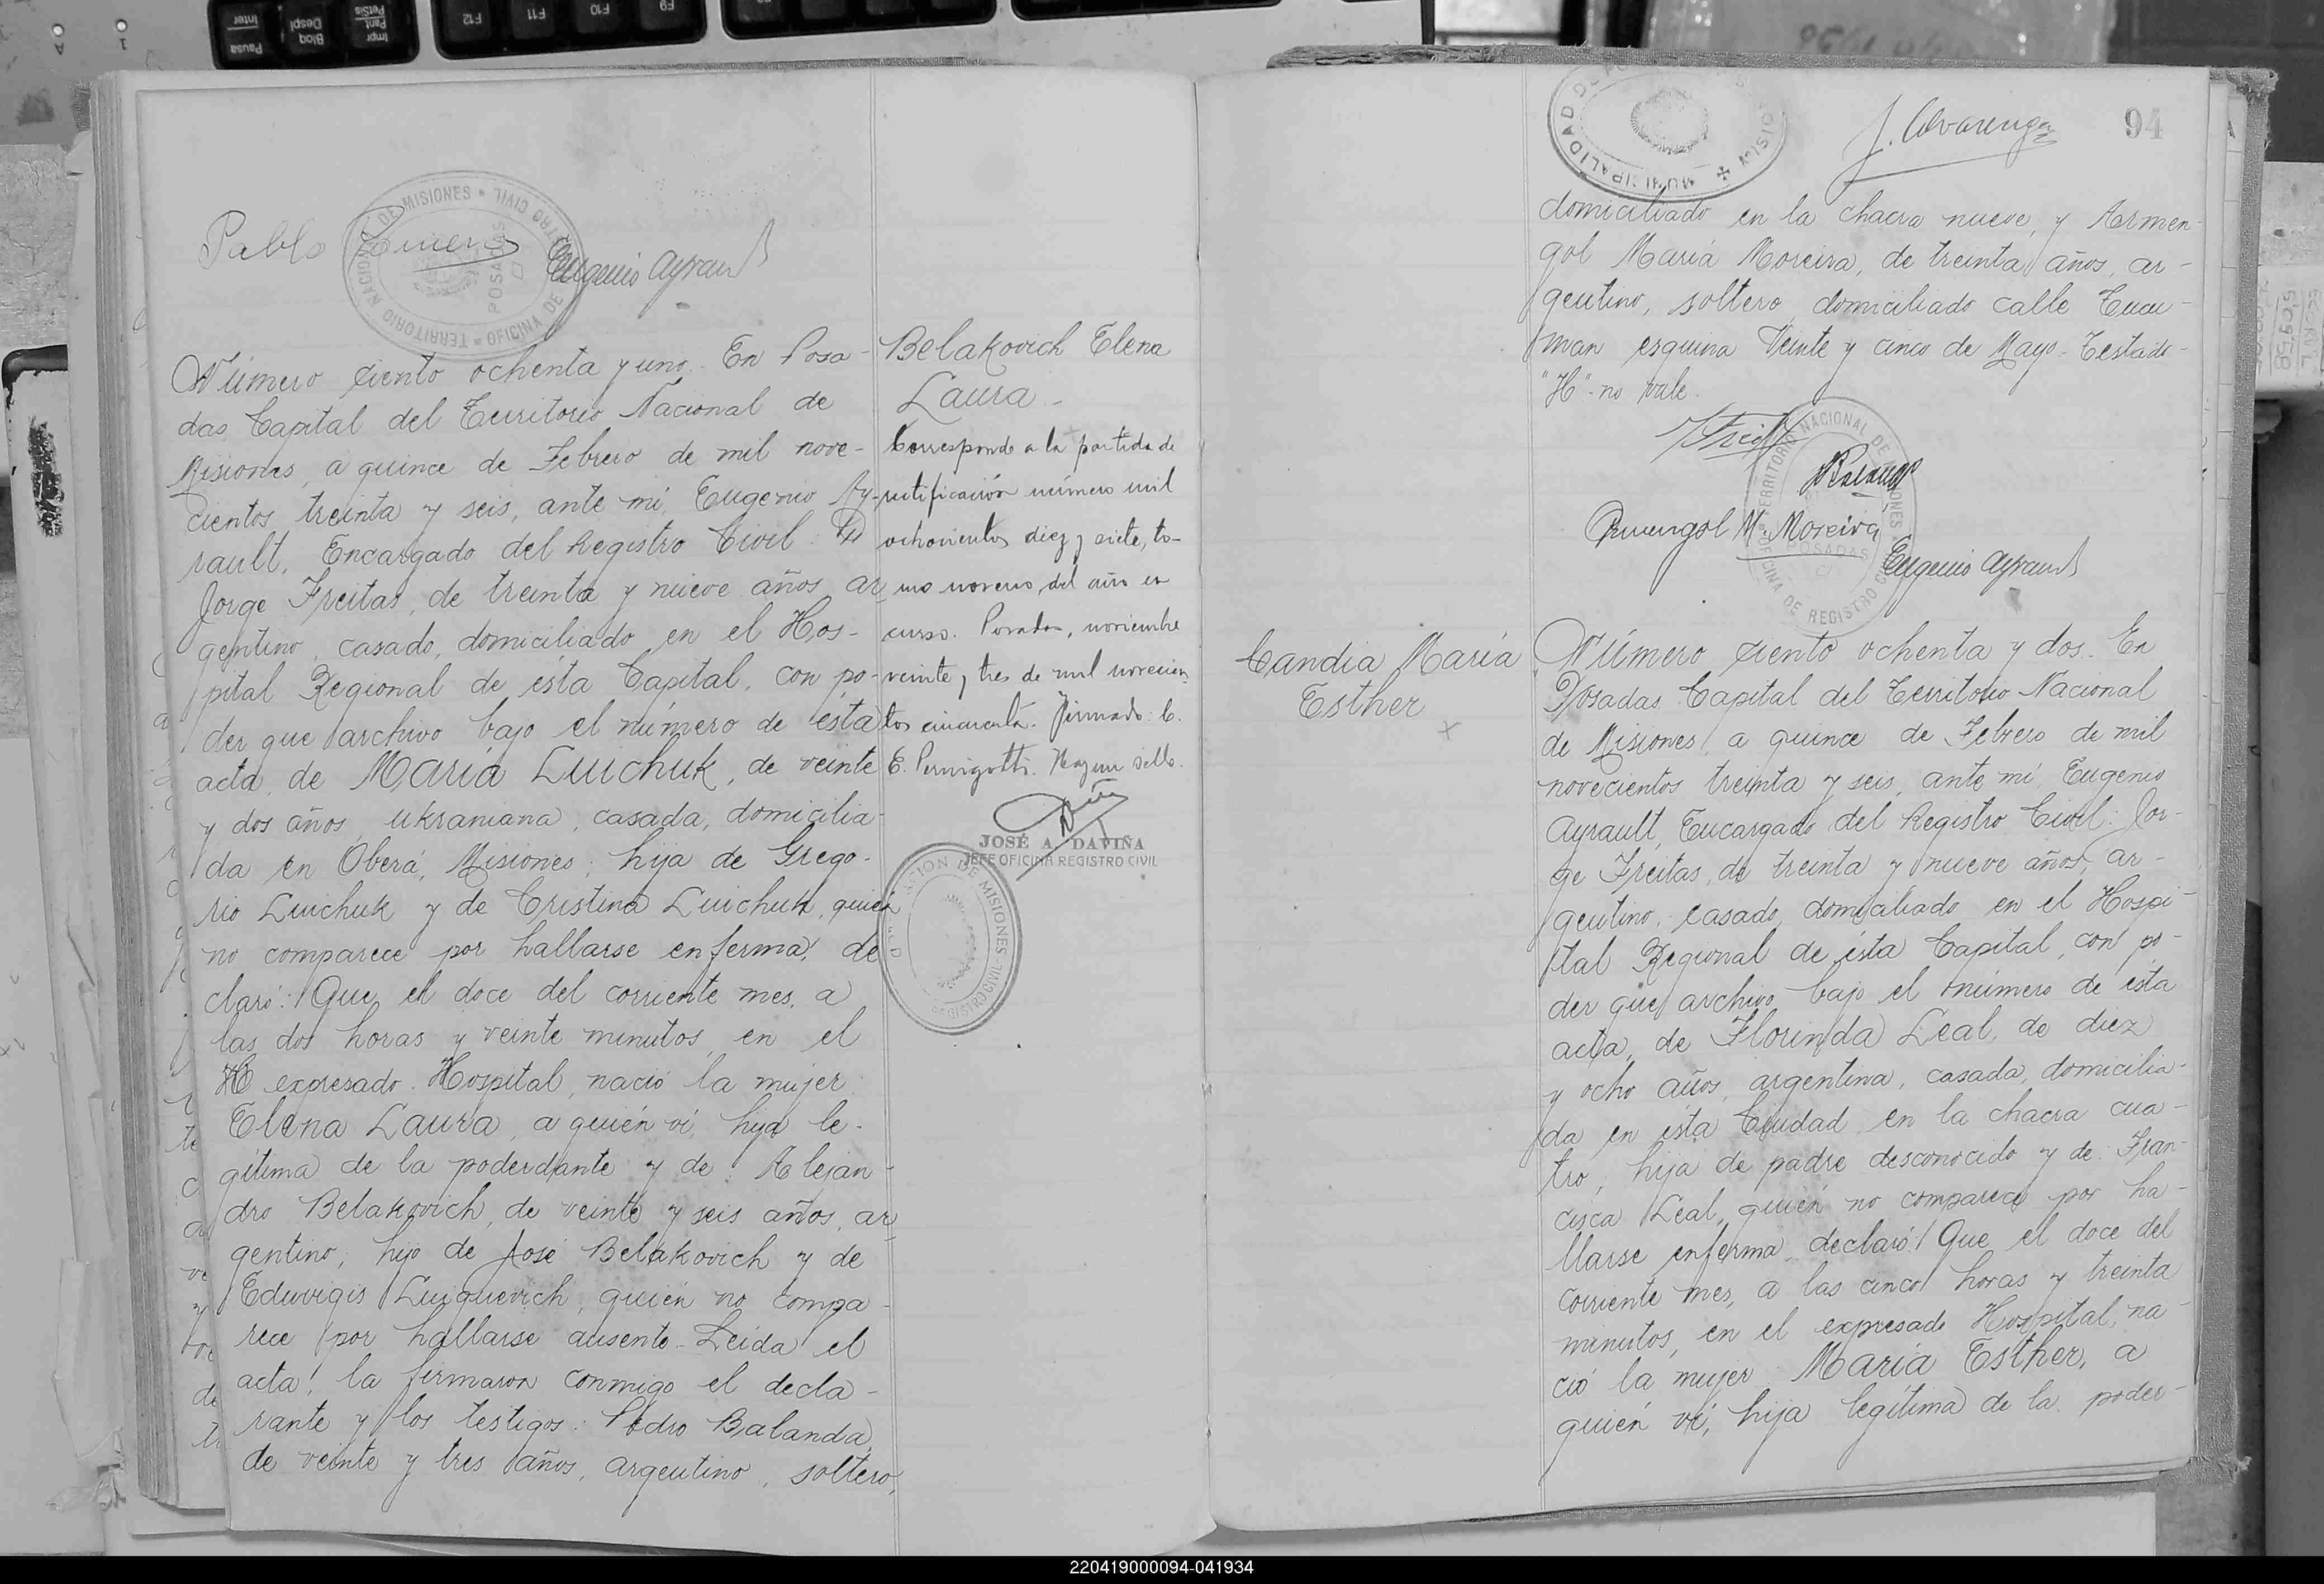 Pablo
Eugenio Ayrault
TERRITORIO NACIONAL DE MISIONES
OFICINA DE REGISTRO CIVIL
POSADAS
Número ciento ochenta y uno. En Posa-
das Capital del Territorio Nacional de
Misiones, a quince de Febrero de mil nove-
cientos treinta y seis, ante mi, Eugenio Ay-
rault, Encargado del Registro Civil:
Jorge Freitas, de treinta y nueve años, ar
gentino, casado, domiciliado en el Hos-
pital Regional de ésta Capital, con po-
der que archivo bajo el número de ésta
acta, de María Luichuk, de veinte
y dos años, ukraniana, casada, domicilia-
da en Oberá, Misiones; hija de Grego-
rio Luichuk y de Cristina Luichuk, quién
no comparece por hallarse enferma, de
claró: Que el doce del corriente mes, a
las dos horas y veinte minutos, en el
H expresado Hospital, nació la mujer:
Elena Laura, a quién ví, hija le-
gítima de la poderdante y de: Alejan-
dro Belakovich, de veinte y seis años, ar
gentino, hijo de José Belakovich y de
Eduvigis Luiquevich, quién no compa-
rece por hallarse ausente. Leída el
acta, la firmaron conmigo el decla-
rante y los testigos: Pedro Balanda,
de veinte y tres años, argentino, soltero,
Belakovich Elena
Laura.-
Corresponde a la partida de
rectificación número mil
ochocientos diez y siete, to-
mo noveno, del año en
curso. Posadas, noviembre
veinte y tres de mil novecien
tos cincuenta. Firmado: C.
E. Pernigotti. Hay un sello.
JOSÉ A. DAVIÑA
JEFE OFICINA REGISTRO CIVIL
J. Alvarenga
94
MUNICIPALIDAD DE
domiciliado en la chacra nueve, y Armen-
gol María Moreira, de treinta años, ar-
gentino, soltero, domiciliado calle Tucu-
man esquina Veinte y cinco de Mayo. Testado-
"H"-no vale.
Armengol M. Moreira
Eugenio Ayrault
TERRITORIO NACIONAL DE MISIONES
OFICINA DE REGISTRO CIVIL
POSADAS
Candia María
Esther
Número ciento ochenta y dos. En
Posadas Capital del Territorio Nacional
de Misiones, a quince de Febrero de mil
novecientos treinta y seis, ante mi, Eugenio
Ayrault, Encargado del Registro Civil: Jor-
ge Freitas, de treinta y nueve años, ar-
gentino, casado, domiciliado en el Hospi-
tal Regional de ésta Capital, con po-
der que archivo bajo el número de ésta
acta, de Florinda Leal, de diez
y ocho años, argentina, casada, domicilia-
da en ésta Ciudad en la chacra cua-
tro, hija de padre desconocido y de Fran-
cisca Leal, quién no comparece por ha-
llarse enferma, declaró: Que el doce del
corriente mes, a las cinco horas y treinta
minutos, en el expresado Hospital, na-
ció la mujer: María Esther, a
quién ví, hija legítima de la poder-
220419000094-041934